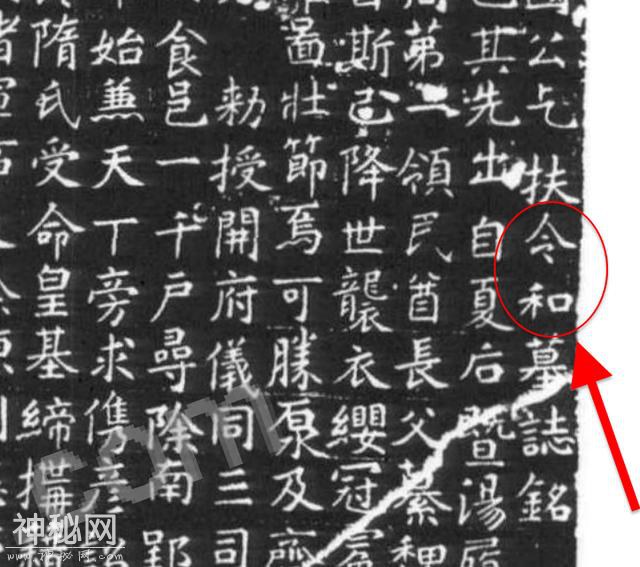 國公乞扶令和墓誌銘
其先出自夏后暨湯
第一領民酋長父綦稗
斯已降世襲衣纓冠
啚壯節焉可勝原及齊
勑授開府儀同三司
食邑一千戶尋除南郢
始兼天丁旁求儁彥
隋氏受命皇基締構
com
神秘网